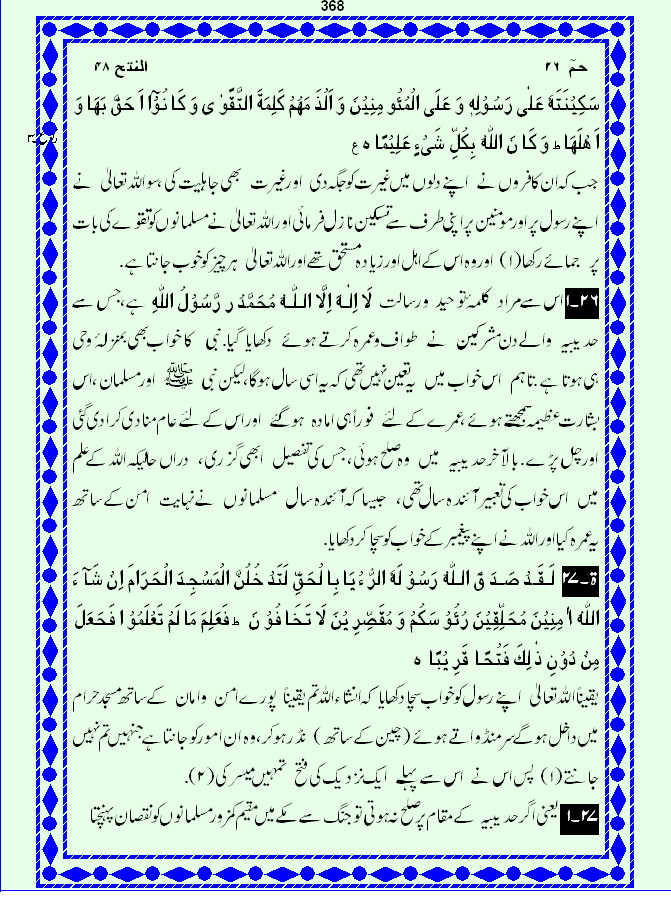 368
حمٓ ۲۶ الفتح ۴۸
سَکِیْنَتَہٗ عَلٰی رَسُوْلِہٖ وَ عَلَی الْمُئْو مِنِیْنَ وَ اَلْذَ مَھُمْ کَلِمَۃَ التَّقْوٰ ی وَ کَا نُوْٓا اَ حَقَّ بِھَا وَ
اَ ھْلَھَا ط وَ کَا نَ اللّٰہُ بِکُلِّ شَیْ ءٍ عَلِیْمًا ہ ع
جب کہ ان کافروں نے اپنے دلوں میں غیرت کو جگہ دی اور غیرت بھی جاہلیت کی، سو اللہ تعالیٰ نے
اپنے رسول پر اور مومنین پر اپنی طرف سے تسکین نازل فرمائی اور اللہ تعالیٰ نے مسلمانوں کو تقوے کی بات
پر جمائے رکھا (۱) اور وہ اس کے اہل اور زیادہ مستحق تھے اور اللہ تعالیٰ ہر چیز کو خوب جانتا ہے۔
۲۶۔۱ اس سے مراد کلمہٴ توحید و رسالت لَا اِلٰہَ اِلَّا اللّٰہُ مُحَمَّدُ ر رَّسُوْلُ اللّٰہِ ہے، جس سے
حدیبیہ والے دن مشرکین نے طواف و عمرہ کرتے ہوئے دکھایا گیا۔ نبی کا خواب بھی بمنزلہٴ وحی
ہی ہوتا ہے۔ تاہم اس خواب میں یہ تعین نہیں تھی کہ یہ اسی سال ہوگا، لیکن نبی ﷺ اور مسلمان، اس
بشارت عظیمہ سمجھتے ہوئے، عمرے کے لئے فوراً ہی امادہ ہوگئے اور اس کے لئے عام منادی کرا دی گئی
اور چل پڑے۔ بالآخر حدیبیہ میں وہ صلح ہوئی، جس کی تفصیل ابھی گزری، دراں حالیکہ اللہ کے علم
میں اس خواب کی تعبیر آئندہ سال تھی، جیسا کہ آئندہ سال مسلمانوں نے نہایت امن کے ساتھ
یہ عمرہ کیا اور اللہ نے اپنے پیغمبر کے خواب کو سچا کر دکھایا۔
ۃ۔۲۷ لَقَدْ صَدَ قَ اللّٰہُ رَسُوْ لَہُ الرُّ ءْ یَا بِا لْحَقِّ لَتَدْ خُلُنَّ الْمَسْجِدَ الْحَرَامَ اِنْ شَآ ءَ
اللّٰہُ اٰ مِنِیْنَ مُحَلِّقِیْنَ رُئُوْ سَکُمْ وَ مُقَصِّرِ یْنَ لَا تَخَا فُوْ نَ ط فَعَلِمَ مَا لَمْ تَعْلَمُوْ ا فَجَعَلَ
مِنْ دُوْنِ ذٰلِکَ فَتْحًا قَرِ یْبًا ہ
یقیناً اللہ تعالیٰ اپنے رسول کو خواب سچا دکھایا کہ انشاء اللہ تم یقیناً پورے امن و امان کے ساتھ مسجد حرام
میں داخل ہوگے سر منڈواتے ہوئے (چین کے ساتھ) نڈر ہو کر، وہ ان امور کو جانتا ہے جنہیں تم نہیں
جانتے (۱) پس اس نے اس سے پہلے ایک نزدیک کی فتح تمہیں میسر کی (۲)۔
۲۷۔۱ یعنی اگر حدیبیہ کے مقام پر صلح نہ ہوتی تو جنگ سے مکے میں مقیم کمزور مسلمانوں کو نقصان پہنچتا